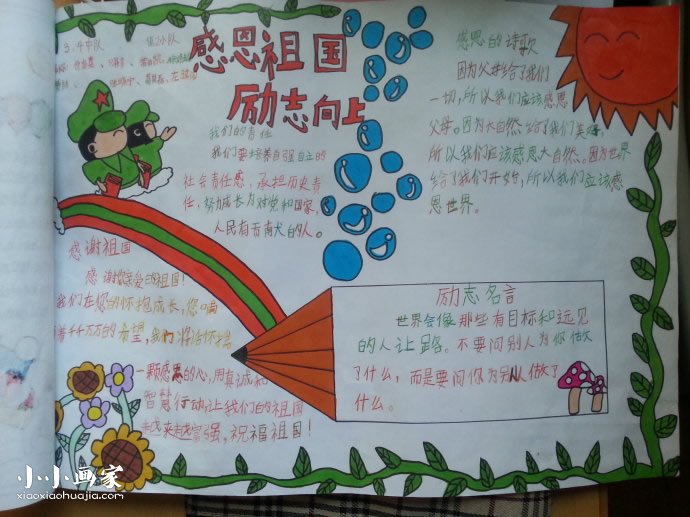 3.4中队
小队
感恩祖国
励志向上
我们的责任
我们要培养自强自立的
社会责任感,承担历史责
任,努力成长为对党和国家,
人民有贡献大的人。
感恩的诗歌
因为父母给了我们
一切,所以我们应该感恩
父母。因为大自然给了我们美好,
所以我们应该感恩大自然。因为世界
给了我们开始,所以我们应该感
恩世界。
感谢祖国
感谢您亲爱的祖国!
我们在您的怀抱成长,您
着千千万万的希望,我们将怀揣
一颗感恩的心,用真诚和
智慧行动,让我们的祖国
越来越富强,祝福祖国!
励志名言
世界会像那些有目标和远见
的人让路。不要问别人为你做
了什么,而是要问你为别人做了
什么。
小小画家
xiaoxiaohuajia.com